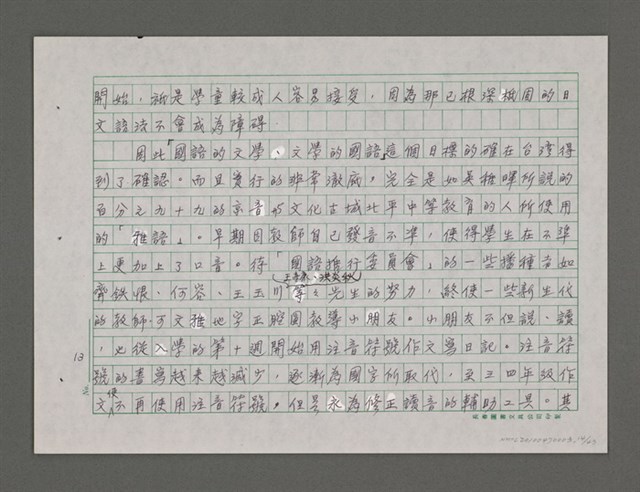 開始，祇是學童較成人容易接受，因為那已根深柢固的日
文語法不會成為障礙。
因此「國語的文學、文學的國語」這個目標的確在台灣得
到了確認。而且實行的非常澈底，完全是如英雅暉所說的
百分之九十九的京音的文化古城北平中等教育的人所使用
的「雅語」。早期因教師自己發音不準，使得學生在不準
上更加上了口音。待「國語推行委員會」的一些播種者如
齊鐵恨、何容、王玉川、王壽康、洪炎秋等先生的努力，終使一些新生代
的教師可文雅地字正腔圓教導小朋友。小朋友不但說、讀
，也從入學的第十週開始用注音符號作文寫日記。注音符
號的書寫越來越減少，逐漸為國字所取代，至三四年級作
文便不再使用注音符號，但是永為修正讀音的輔助工具。其
13